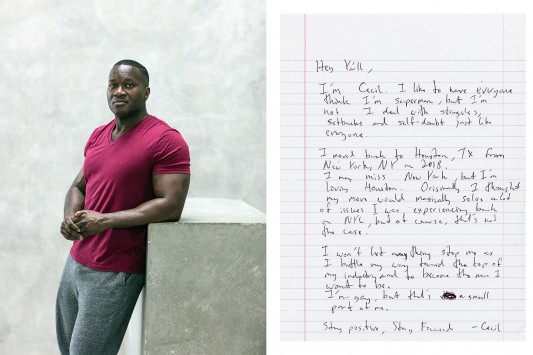 Hey Y'all,
I'm Cecil. I like to have everyone
think I'm superman, but I'm
not. I deal with struggles,
setbacks and self-doubt just like
everyone.
I moved back to Houston, TX from
New York, NY in 2018.
I may miss New York, but I'm
loving Houston. Originally I thought
my move would magically solve a lot
of issues I was experiencing back
in NYC, but of course, that's not
the case.
I won't let anything stop me as
I battle my way toward the top of
my industry and to become the man I
want to be.
I'm gay, but that's a small
part of me.
Stay positive, Stay Forward - Cecil